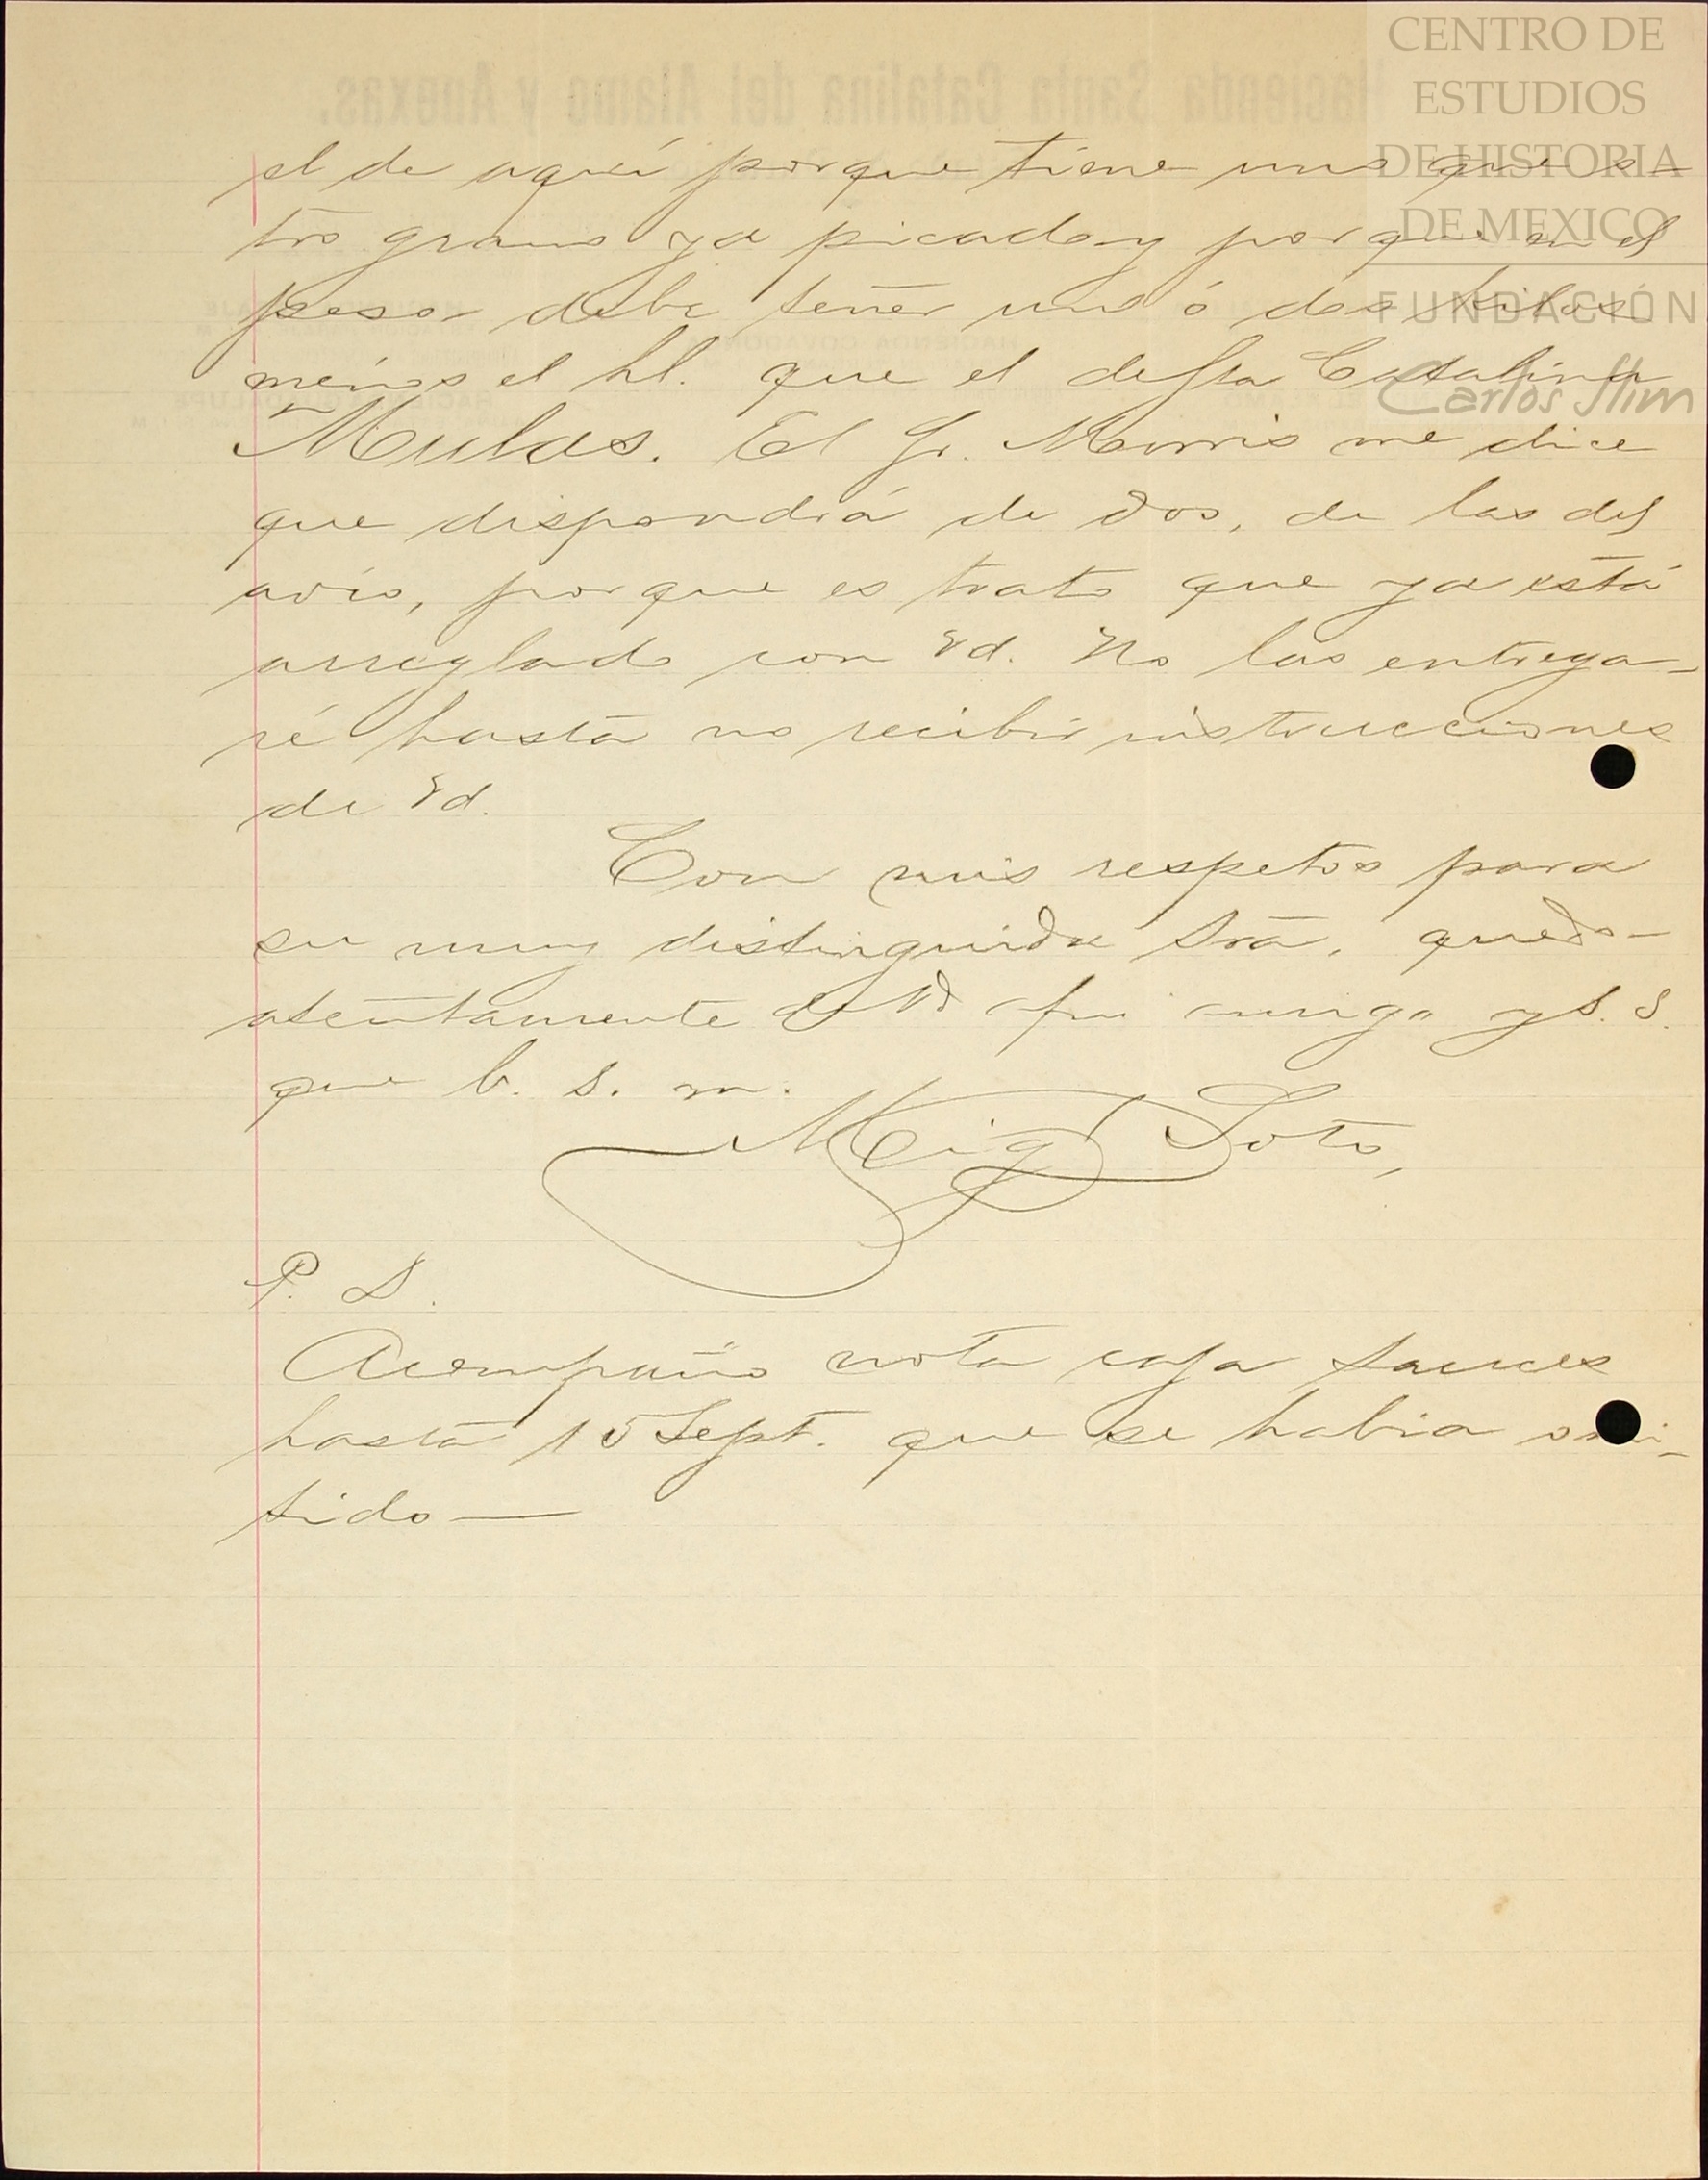 CENTRO DE
ESTUDIOS
DE HISTORIA
DE MEXICO
FUNDACIÓN
Carlos Slim
Hacienda Santa Catalina del Alamo y Anexas.
el de aquí porque tiene uno que o-
tro grano ya picado y porque en el
peso debe tener uno ó dos kilos
ménos el hl. que el de Sta Catalina
Mulas. El Sr. Morris me dice
que dispondrá de dos, de las del
avío, porque es trato que ya está
arreglado con Vd. No las entrega-
ré hasta no recibir instrucciones
de Vd.
Con mis respetos para
su muy distinguida Sra, quedo
atentamente de Vd afmo amigo y S. S.
que b. s. m.
Mig Soto,
P. D.
Acompaño nota caja Sauces
hasta 15 Sept. que se habia omi-
tido—